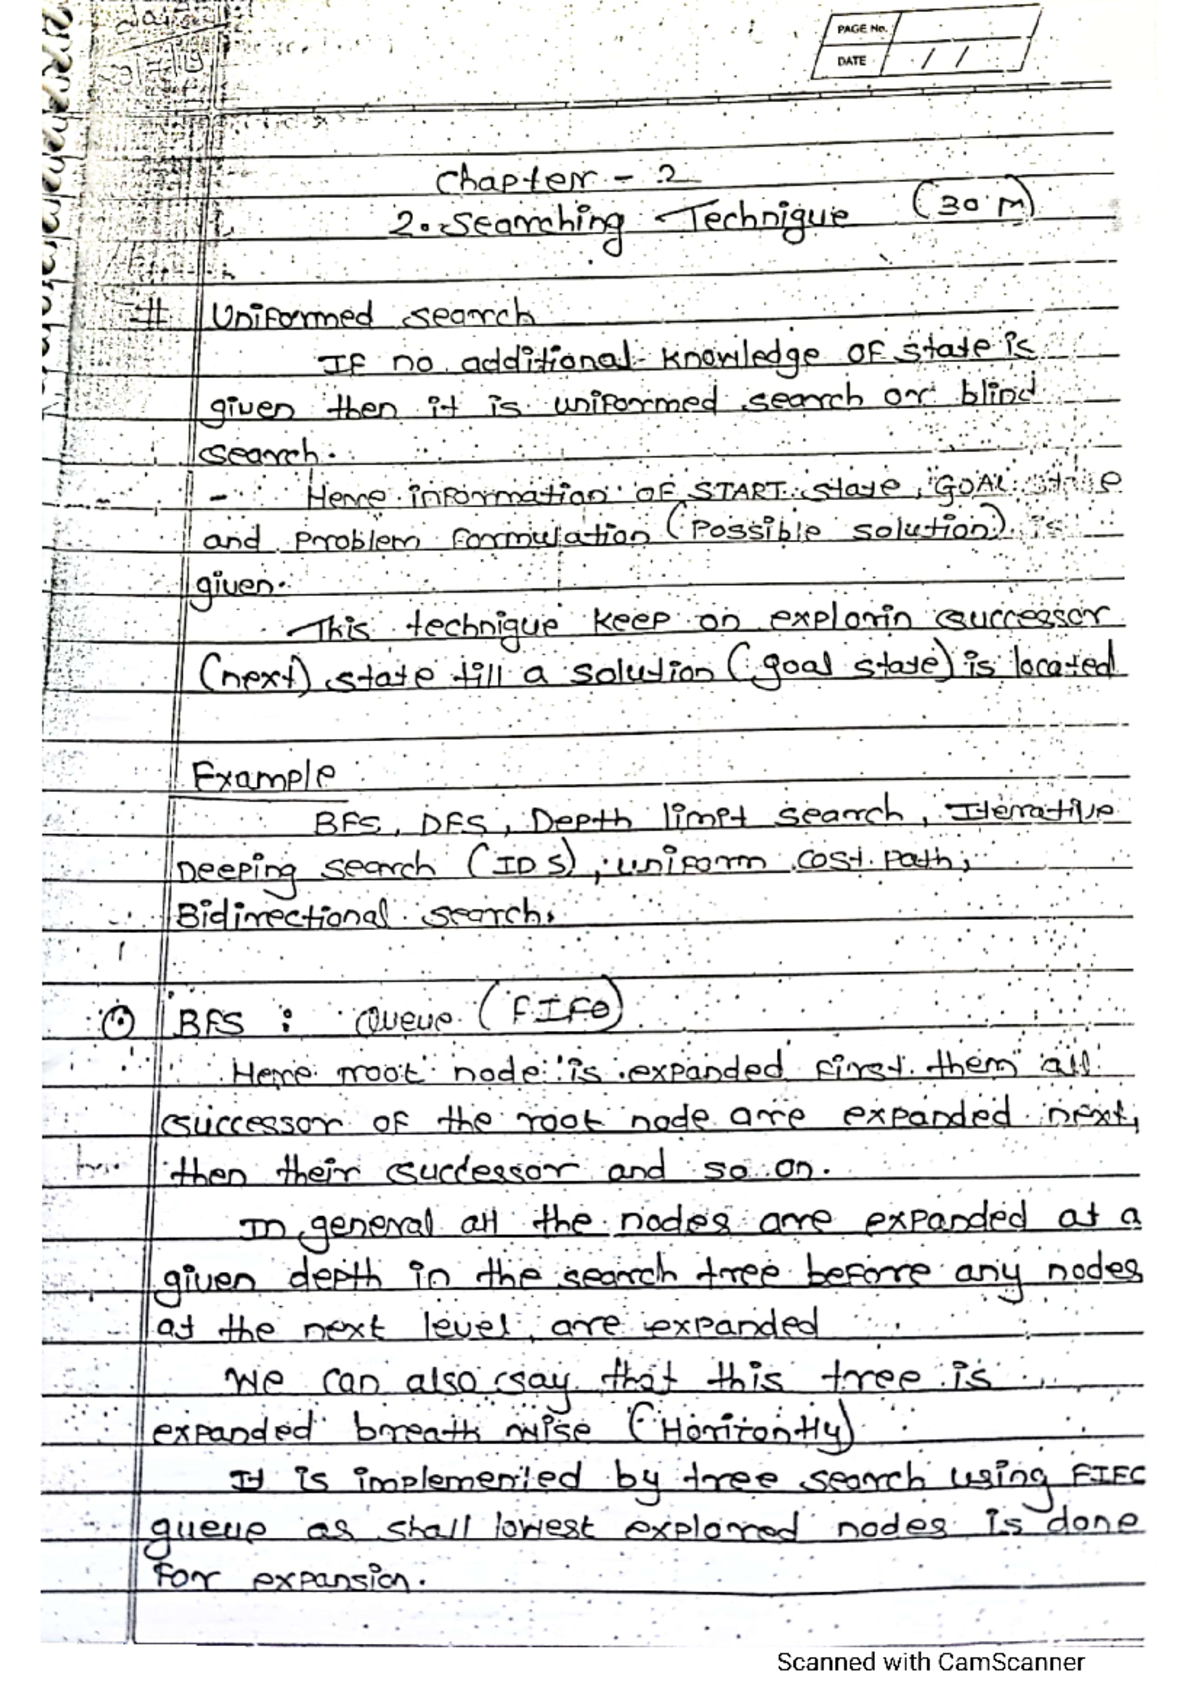 PAGE No.
DATE / /
Chapter - 2
2. Searching Technique (30 M)
# Uniformed search
If no additional knowledge of state is
given then it is uniformed search or blind
search.
- Here information of START state, GOAL state
and problem formulation (Possible solution) is
given.
This technique keep on explorin successor
(next) state till a solution (goal state) is located
Example
BFS, DFS, Depth limit search, Iterative
Deeping search (IDS), uniform cost path,
Bidirectional search.
BFS : Queue (FIFO)
Here root node is expanded first them all
successor of the root node are expanded next,
then their successor and so on.
In general all the nodes are expanded at a
given depth in the search tree before any nodes
at the next level are expanded
We can also say that this tree is
expanded breath wise (Horizontly)
It is implemented by tree search using FIFO
queue as shall lowest explored nodes is done
for expansion.
Scanned with CamScanner